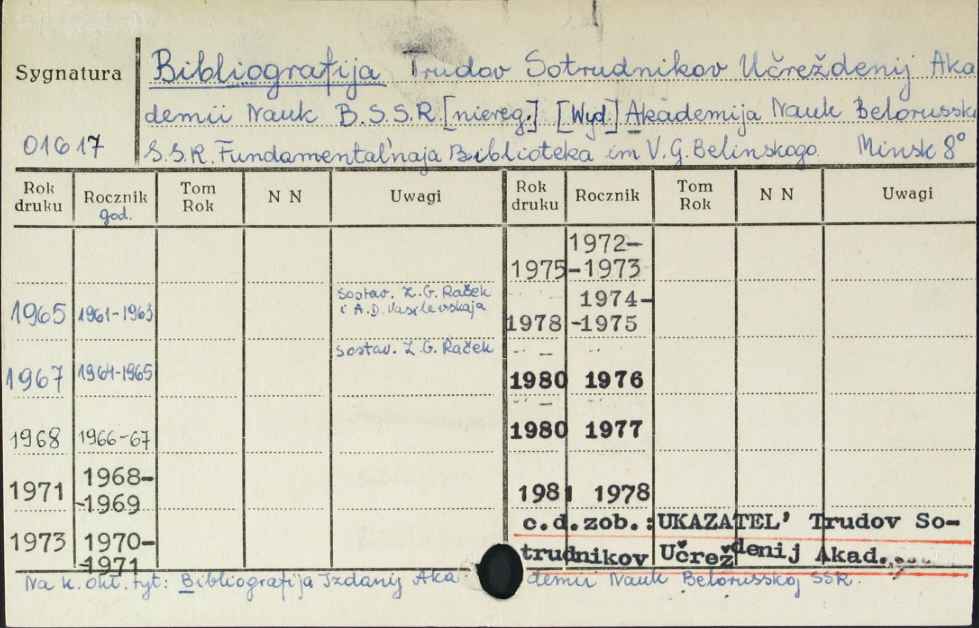 Sygnatura
01617
Bibliografija Trudov Sotrudnikov Učreždenij Aka
demii Nauk B.S.S.R. [niereg.] [Wyd.] Akademija Nauk Belorussk
S.S.R. Fundamental'naja Biblioteka im V.G. Belinskogo. Minsk 8°
Rok druku Rocznik god. Tom Rok N N Uwagi Rok druku Rocznik Tom Rok N N Uwagi
1965 1961-1963 sostav. Z.G. Raček i A.D. Vasilevskaja
1967 1964-1965 sostav. Z.G. Raček
1968 1966-67
1971 1968-
-1969
1973 1970-
-1971
1972-
1975 -1973
1974-
1978 -1975
1980 1976
1980 1977
1981 1978
c.d.zob.:UKAZATEL' Trudov So-
trudnikov Učreždenij Akad.....
Na k. okł. tyt: Bibliografija Izdanij Aka demii Nauk Belorusskoj SSR.